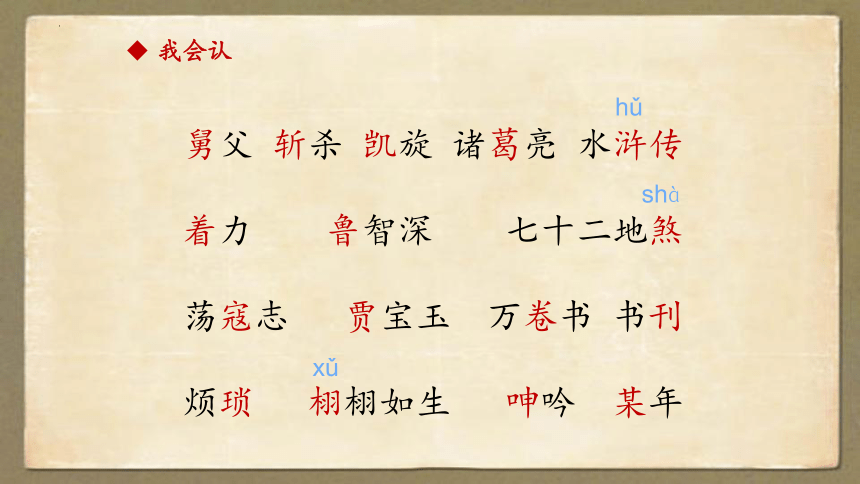 ◆ 我会认
hǔ
舅父 斩杀 凯旋 诸葛亮 水浒传
shà
着力 鲁智深 七十二地煞
荡寇志 贾宝玉 万卷书 书刊
xǔ
烦琐 栩栩如生 呻吟 某年